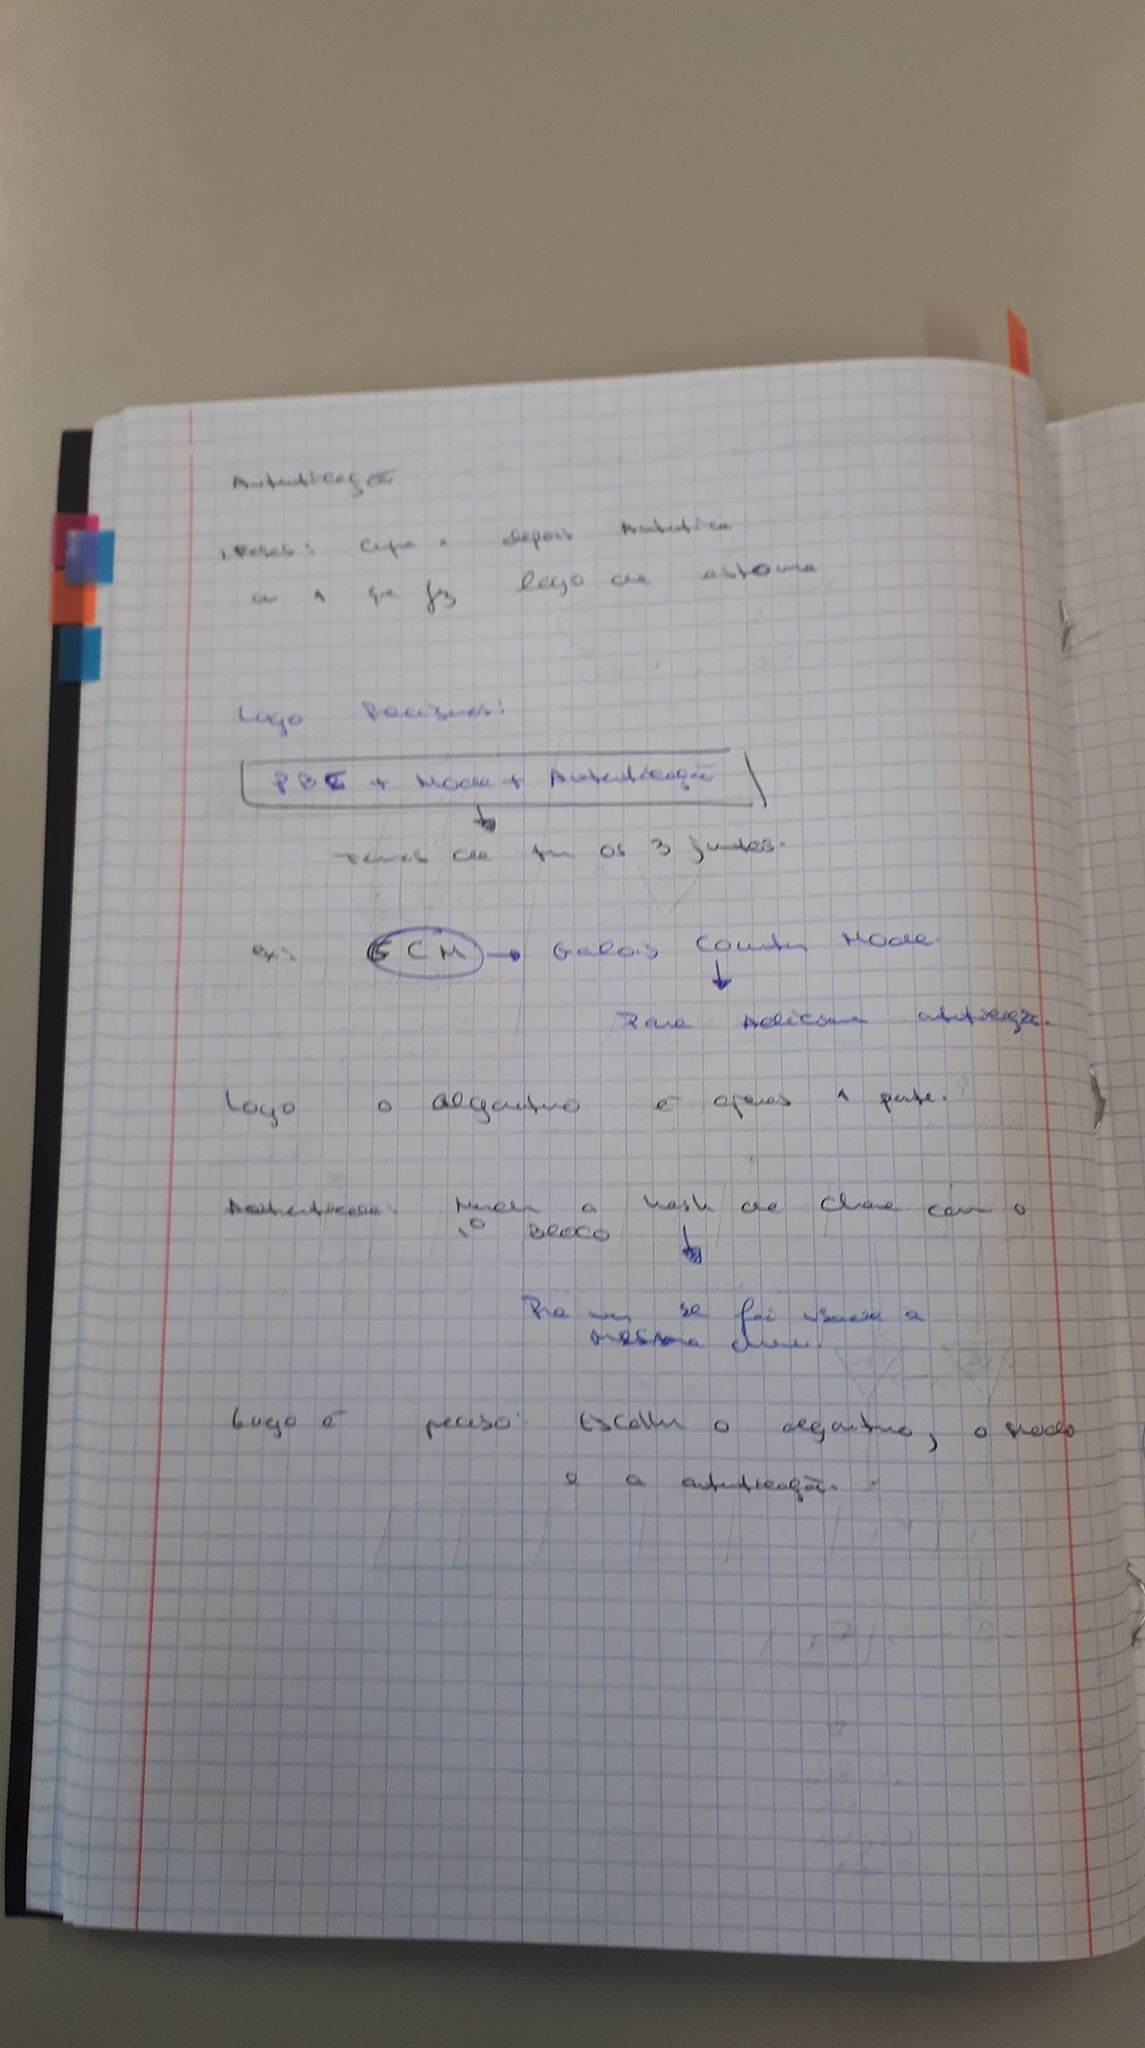 Autenticação
depois Autentica
ou 1 que faz logo de
Logo Precisamos:
PBE + Mode + Autenticação
Temos de ter os 3 juntos.
ex: GCM → Galois Counter Mode.
Para Adicionar autenticação.
Logo o algoritmo é apenas 1 parte.
a hash da chave com o
Bloco
se foi usada a
mesma chave.
Logo é preciso: Escolher o algoritmo, o modo
e a autenticação.